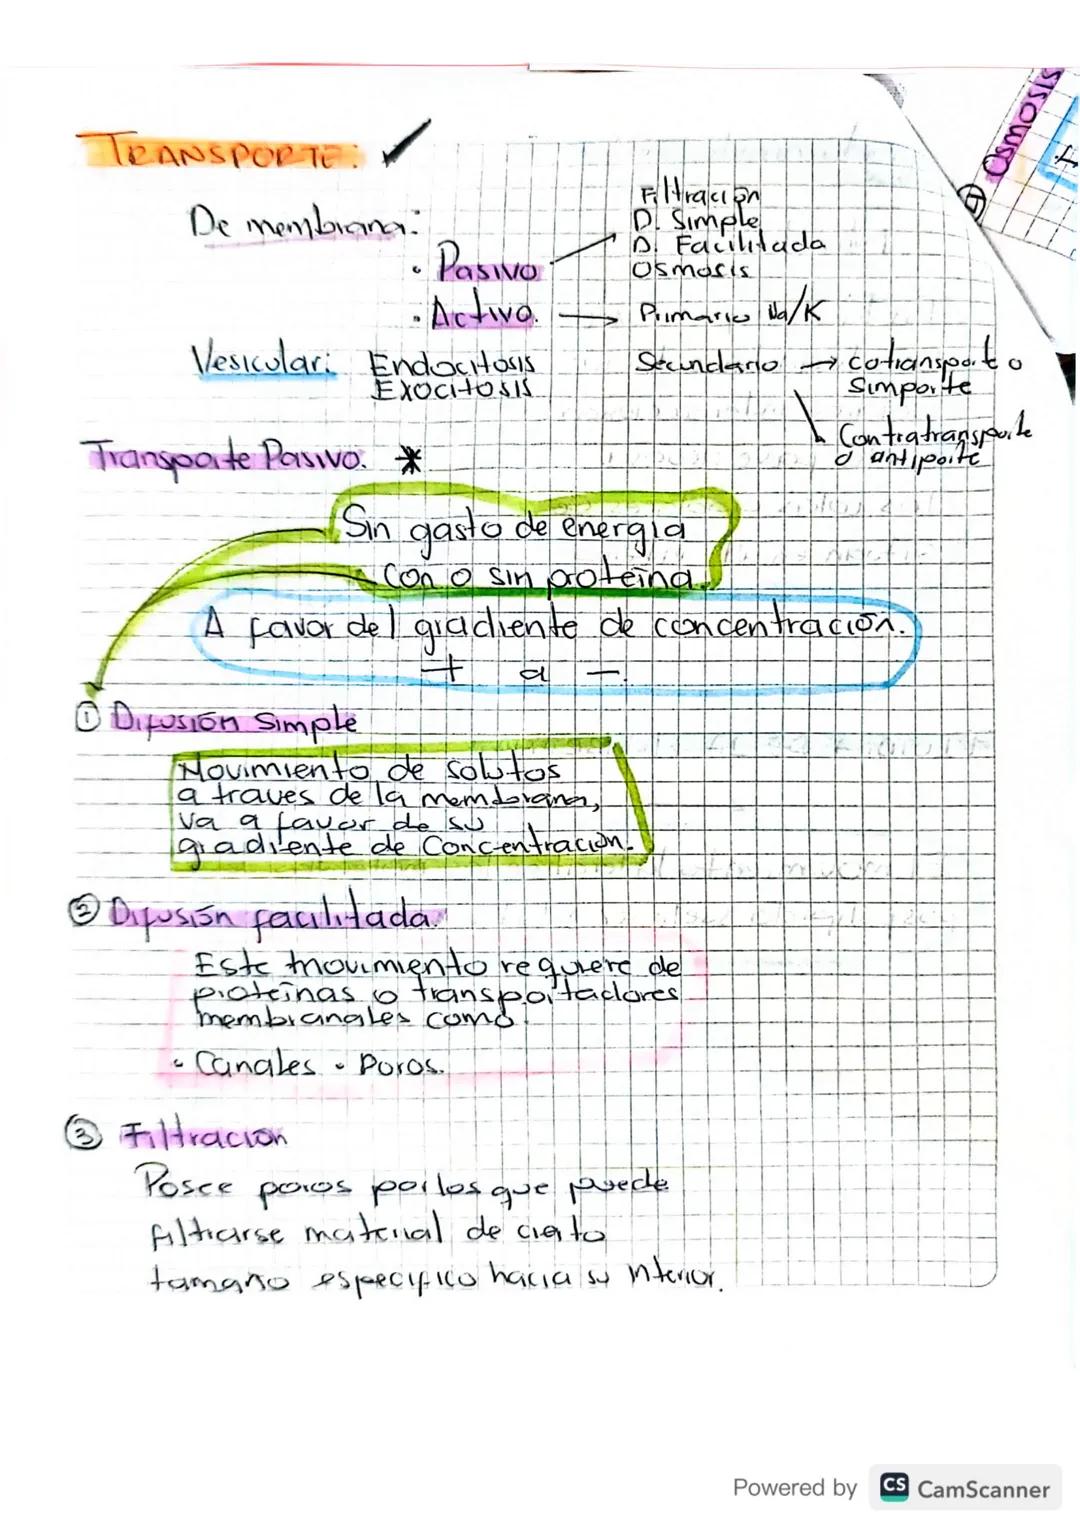 TRANSPORTE:
De membrana:
• Pasivo
Filtración
D. Simple
D. Facilitada
Osmosis
• Activo.
Primario Na/K
Secundario → cotransporte o
Simporte
Contratransporte
o antiporte
Vesicular: Endocitosis
Exocitosis
Transporte Pasivo. *
Sin gasto de energia
Con o sin proteína.
A favor del gradiente de concentración.
+ a -.
① Difusión Simple
Movimiento de solutos
a traves de la membrana,
va a favor de su
gradiente de Concentración.
② Difusión facilitada.
Este movimiento requiere de
proteínas o transportadores
membranales como.
• Canales • Poros.
③ Filtracion
Posee poros por los que puede
filtrarse material de cierto
tamaño especifico hacia su interior.
④ Osmosis
Powered by CS CamScanner